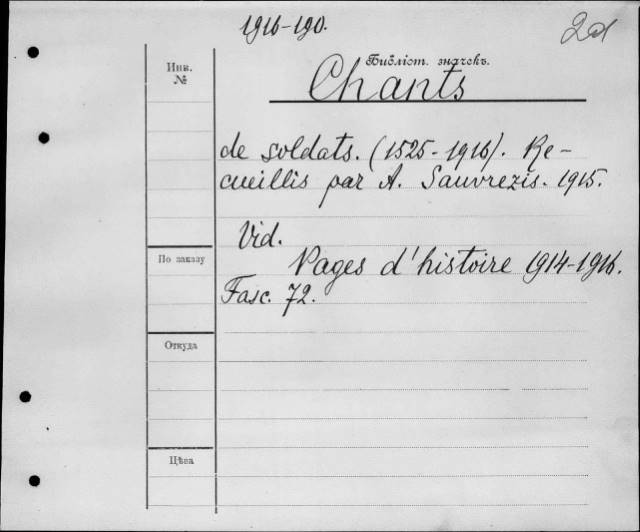 1916-190.
2d
Инв.
№
Библіот. значекъ.
Chants
de soldats. (1525-1916). Re-
cueillis par A. Sauvrezis. 1915.
Vid.
Pages d'histoire 1914-1916.
Fasc. 72.
По заказу
Откуда
Цѣна